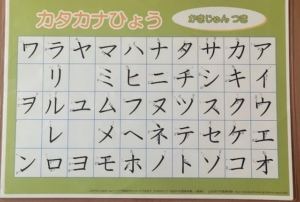 カタカナひょう
かきじゅん つき
ワラヤマハナタサカア
リ ミヒニチシキイ
ヲルユムフヌツスクウ
レ メヘネテセケエ
ンロヨモホノトソコオ